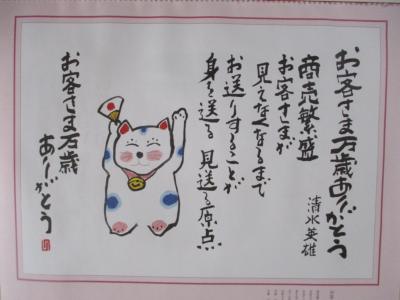 お客さま万歳ありがとう
清水英雄
商売繁盛
お客さまが
見えなくなるまで
お送りすることが
身を送る 見送る原点
お客さま万歳
ありがとう